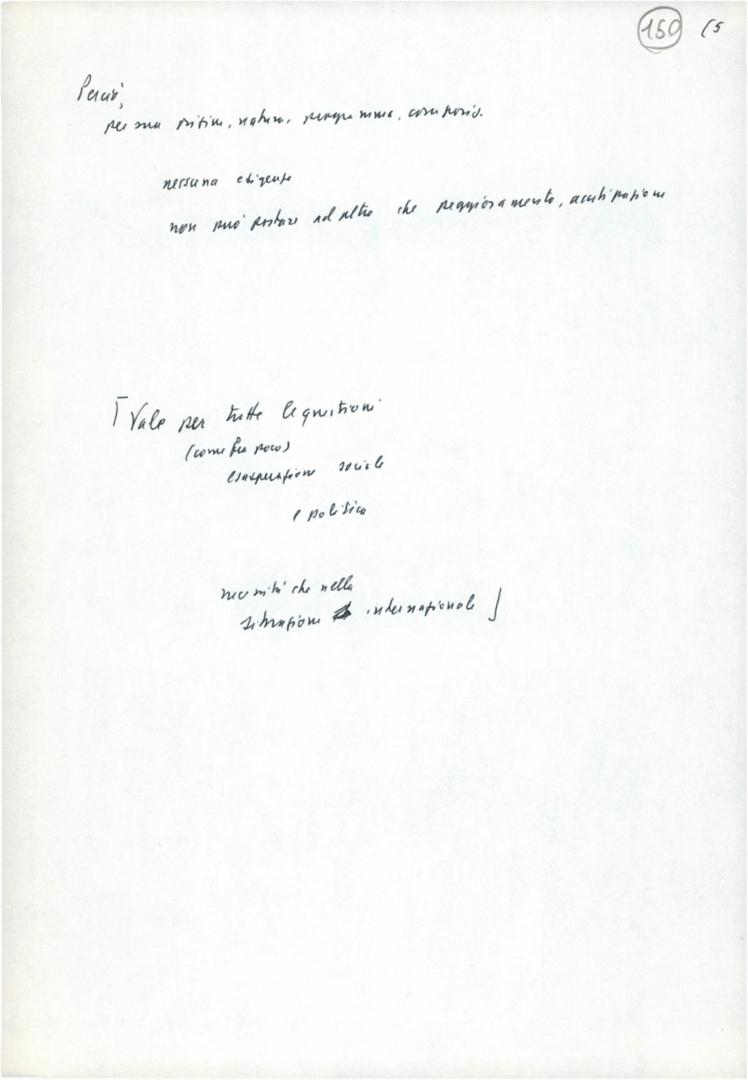 150 15
Perciò,
per sua origine, natura, programma, composiz.
nessuna esigenza
non può portare ad altro che peggioramento, acutizzazione
[Vale per tutte le questioni
(come fra poco)
esasperazione sociale
e politica
necessità che nella
situazione internazionale]